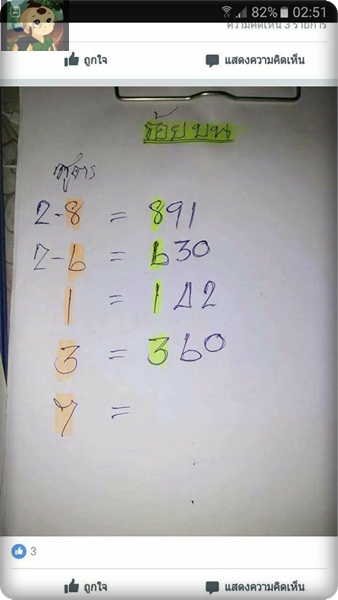 82% 02:51
ความคิดเห็น 3 รายการ
ถูกใจ แสดงความคิดเห็น
ร้อยบน
สูตร
2-8 = 891
2-6 = 630
1 = 142
3 = 360
7 =
3
ถูกใจ แสดงความคิดเห็น